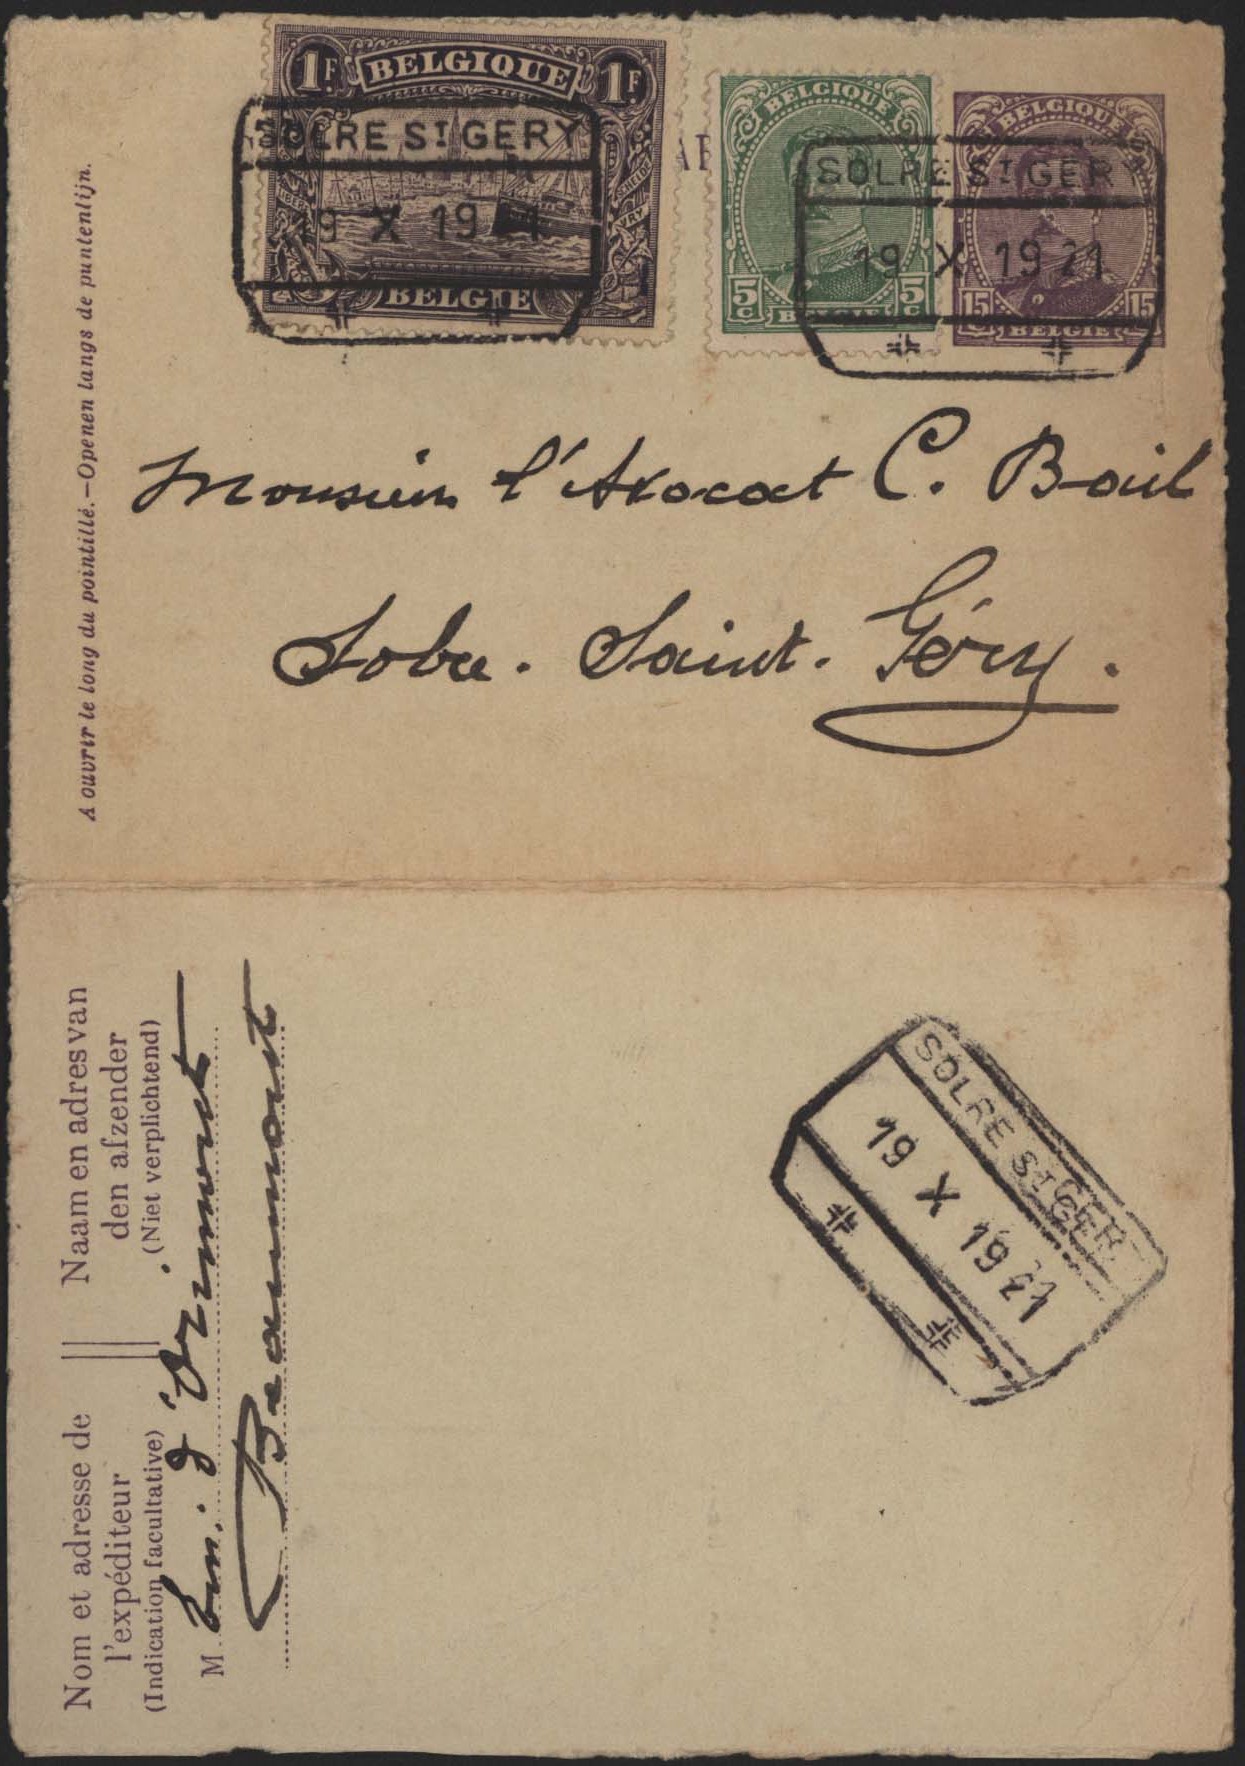 1F. BELGIQUE 1F.
BELGIË
SOLRE ST GERY
19 X 19 21
BELGIQUE
5c 5c
BELGIË
BELGIQUE
15c 15c
BELGIË
SOLRE ST GERY
19 X 19 21
A ouvrir le long du pointillé.—Openen langs de puntenlijn.
Monsieur l'Avocat C.
Solre. Saint. Géry.
Nom et adresse de
l'expéditeur
(Indication facultative)
Naam en adres van
den afzender
(Niet verplichtend)
M. Em. d'Orimont
Beaumont
SOLRE ST GERY
19 X 19 21